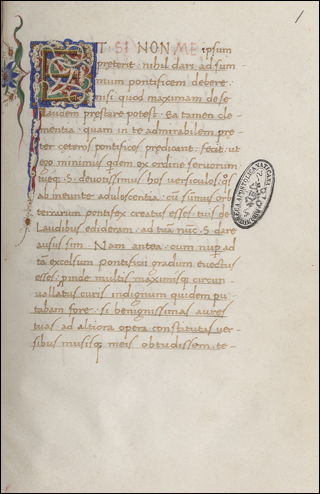 1
ET SI NON ME ipsum
preterit nihil dari ad sum-
mum pontificem debere
nisi quod maximam de se
laudem prestare potest. Ea tamen cle
mentia quam in te admirabilem pre
ter ceteros pontifices predicant fecit ut
ego minimus quidem ex ordine servorum
tueque .S. devotissimus hos versiculos quos
ab ineunte adulescentia cum summus orbis
terrarum pontifex creatus esses tuis de
laudibus edideram ad tuam nunc .S. dare
ausus sim. Nam antea cum nuper ad
tam excelsum pontificatus gradum evectus
esses proinde multis maximisque circum
vallatus curis indignum quidem pu
tabam fore si benignissimas aures
tuas ad altiora opera constitutas ver
sibus musisque meis obtudissem te-